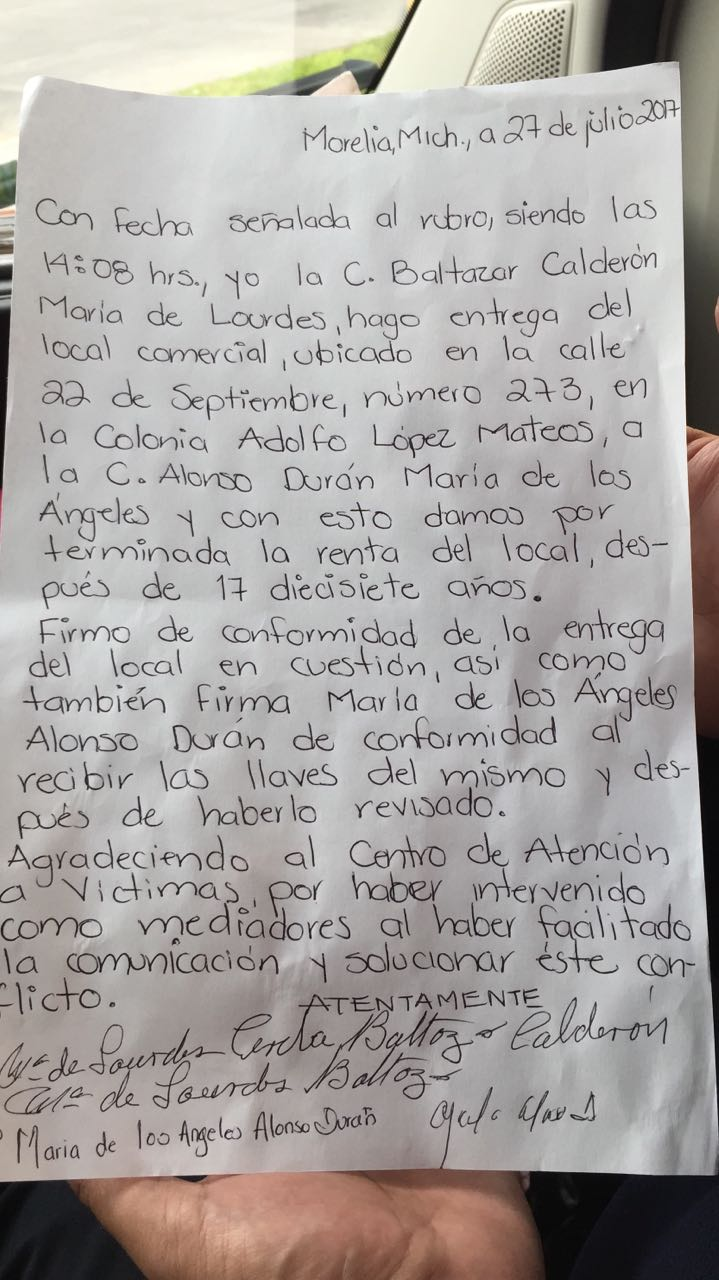 Morelia, Mich., a 27 de julio 2017
Con fecha señalada al rubro, siendo las
14:08 hrs., yo la C. Baltazar Calderón
María de Lourdes, hago entrega del
local comercial, ubicado en la calle
22 de Septiembre, número 273, en
la Colonia Adolfo López Mateos, a
la C. Alonso Durán María de los
Ángeles y con esto damos por
terminada la renta del local, des-
pués de 17 diecisiete años.
Firmo de conformidad de la entrega
del local en cuestión, así como
también firma María de los Ángeles
Alonso Durán de conformidad al
recibir las llaves del mismo y des-
pués de haberlo revisado.
Agradeciendo al Centro de Atención
a Víctimas, por haber intervenido
como mediadores al haber facilitado
la comunicación y solucionar éste con-
flicto.
ATENTAMENTE
Ma de Lourdes Baltoz Calderón
Ma de Lourdes Baltoz
Maria de los Angeles Alonso Durañ